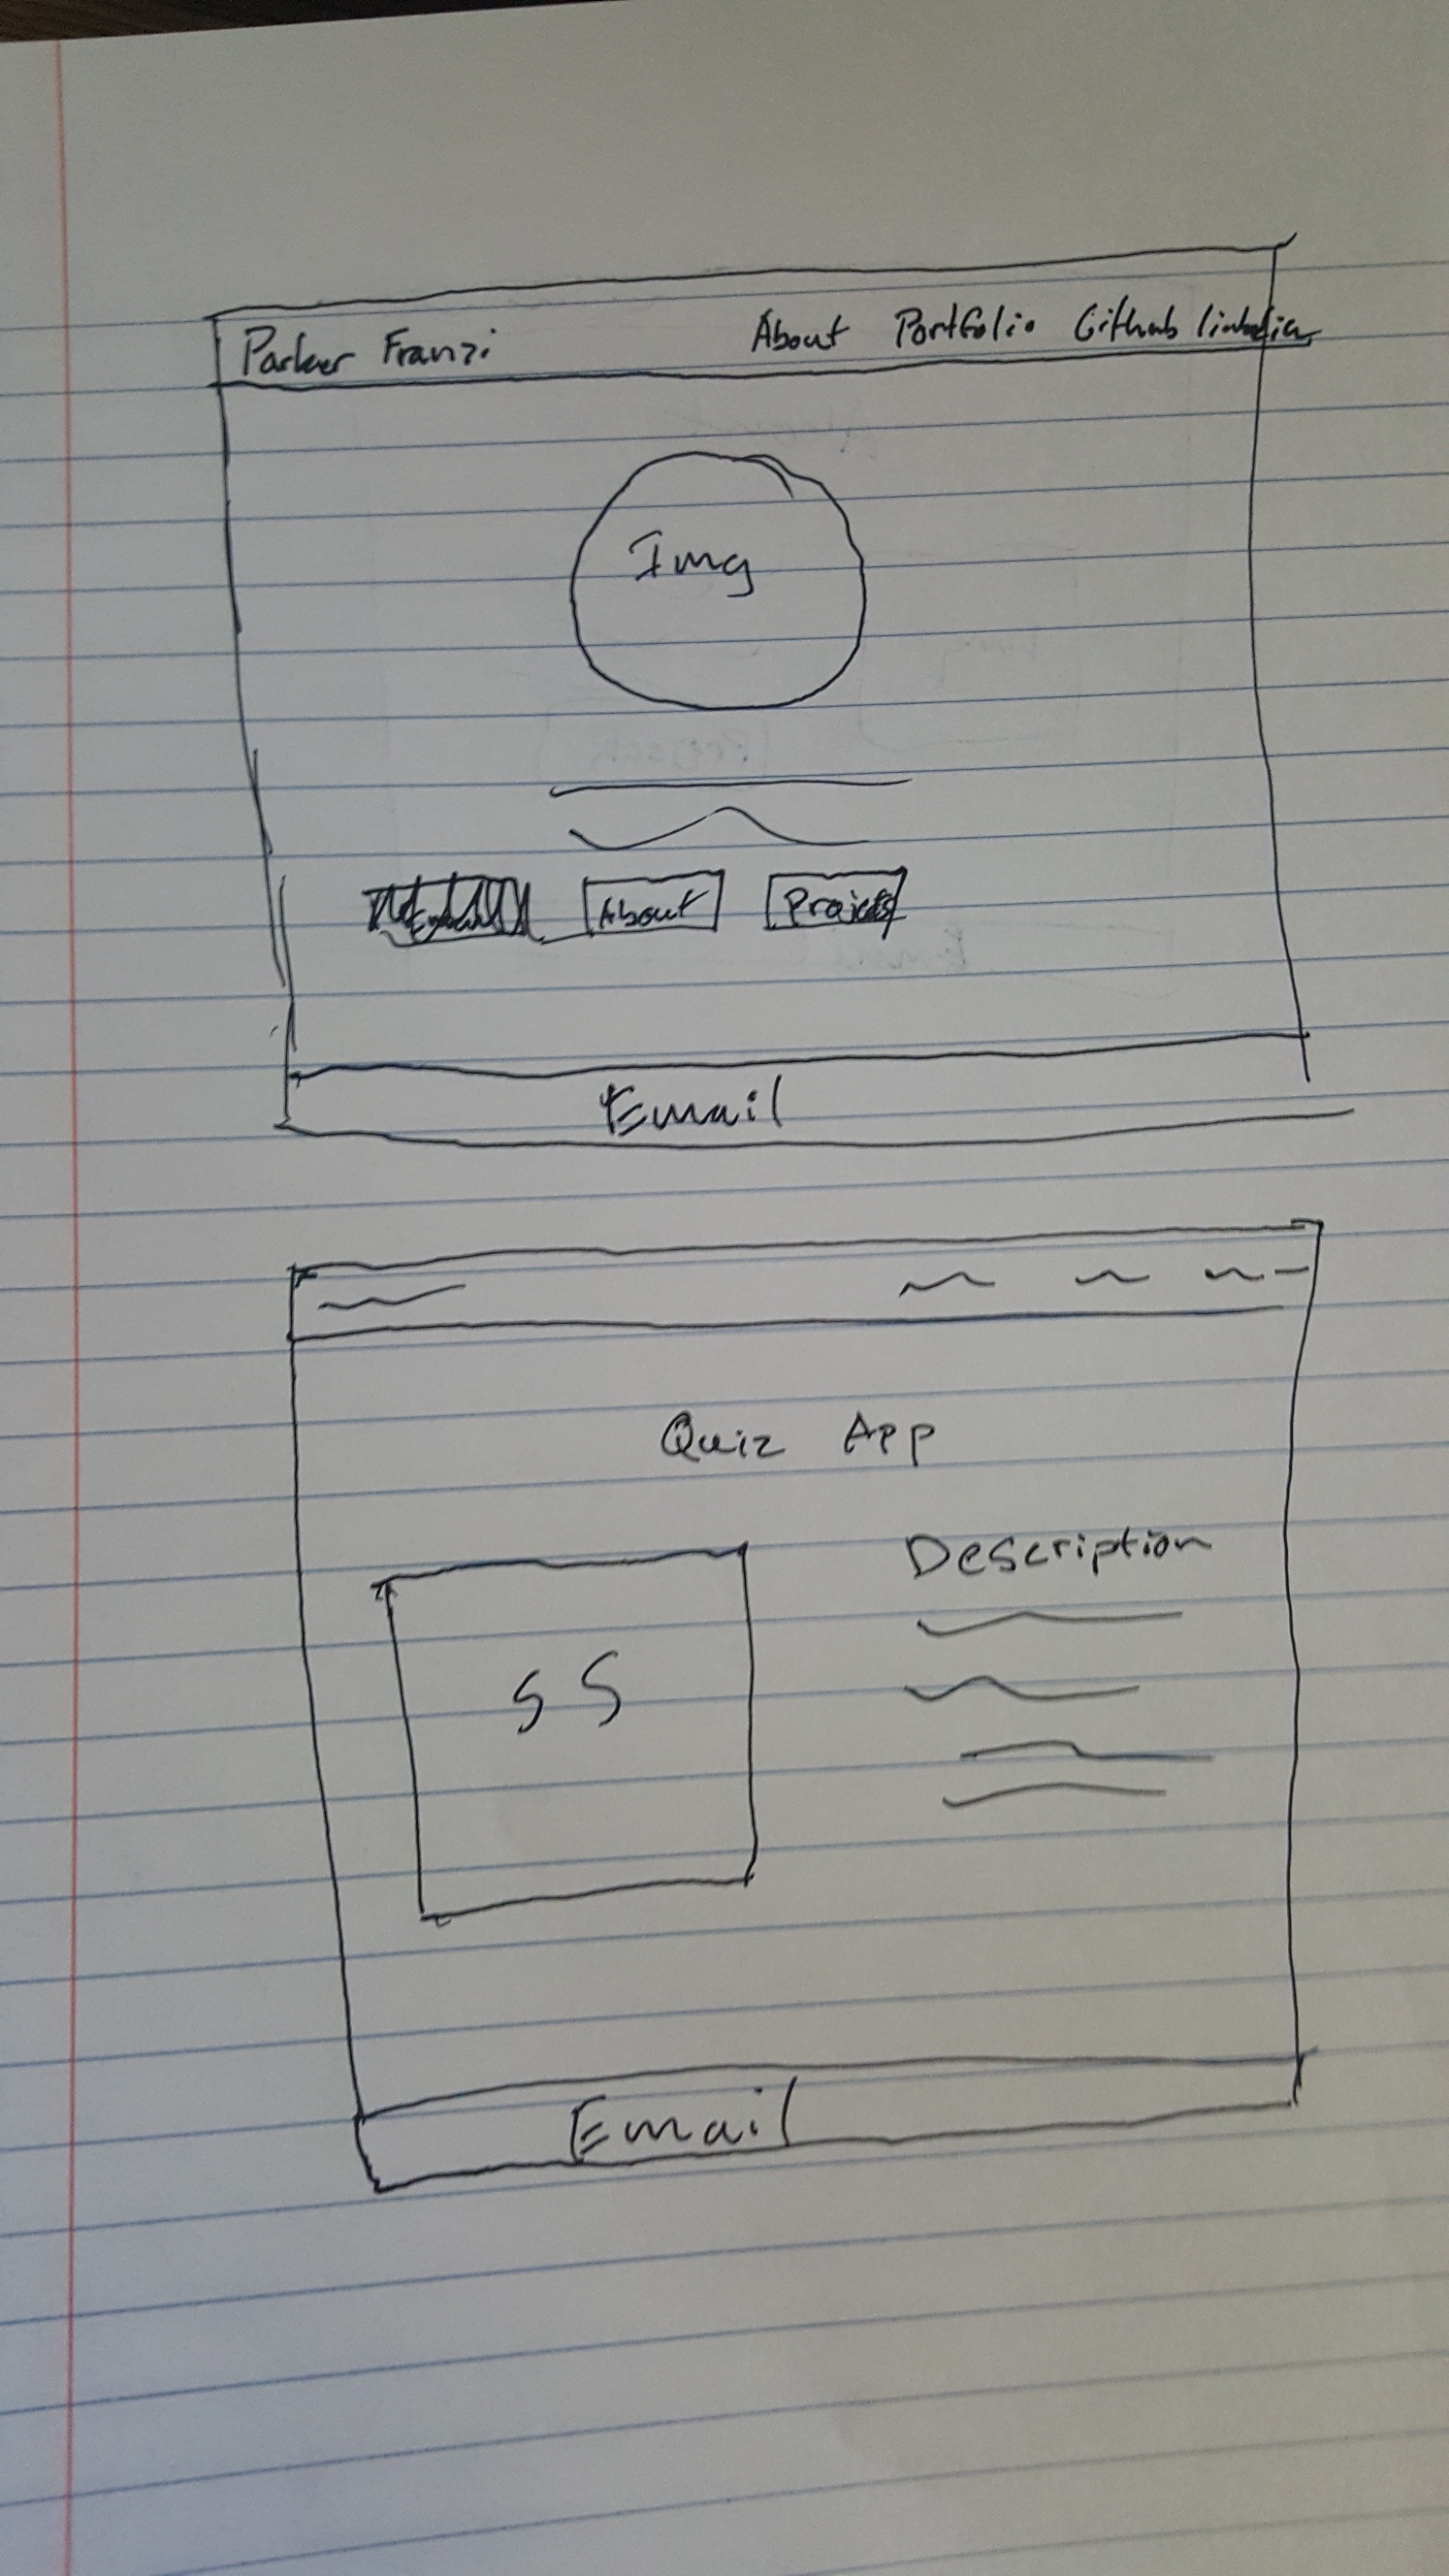 Parker Franzi
About Portfolio Github linkedin
Img
About Projects
Email
Quiz App
Description
SS
Email